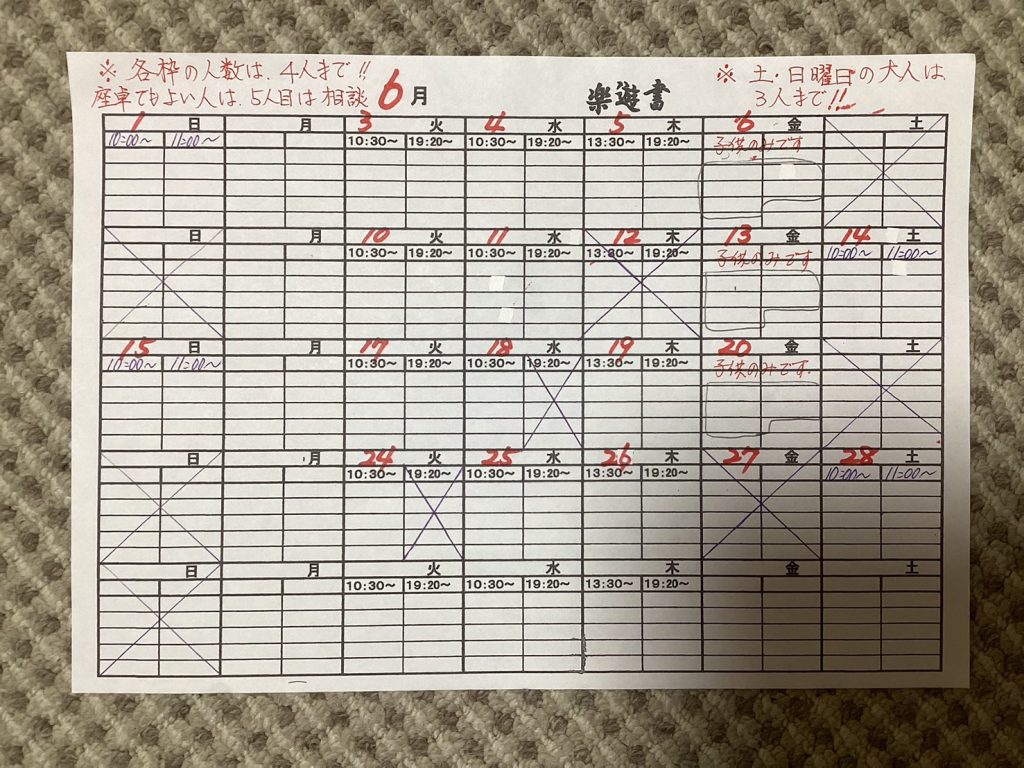 ※ 各枠の人数は、4人まで!!
座卓でもよい人は、5人目は相談
6月
楽遊書
※ 土・日曜日の大人は
3人まで!!
1 日 月 3 火 4 水 5 木 6 金 土
10:00〜 11:00〜 10:30〜 19:20〜 10:30〜 19:20〜 13:30〜 19:20〜 子供のみです
日 月 10 火 11 水 12 木 13 金 14 土
10:30〜 19:20〜 10:30〜 19:20〜 13:30〜 19:20〜 子供のみです 10:00〜 11:00〜
15 日 月 17 火 18 水 19 木 20 金 土
10:00〜 11:00〜 10:30〜 19:20〜 10:30〜 19:20〜 13:30〜 19:20〜 子供のみです.
日 月 24 火 25 水 26 木 27 金 28 土
10:30〜 19:20〜 10:30〜 19:20〜 13:30〜 19:20〜 10:00〜 11:00〜
日 月 火 水 木 金 土
10:30〜 19:20〜 10:30〜 19:20〜 13:30〜 19:20〜